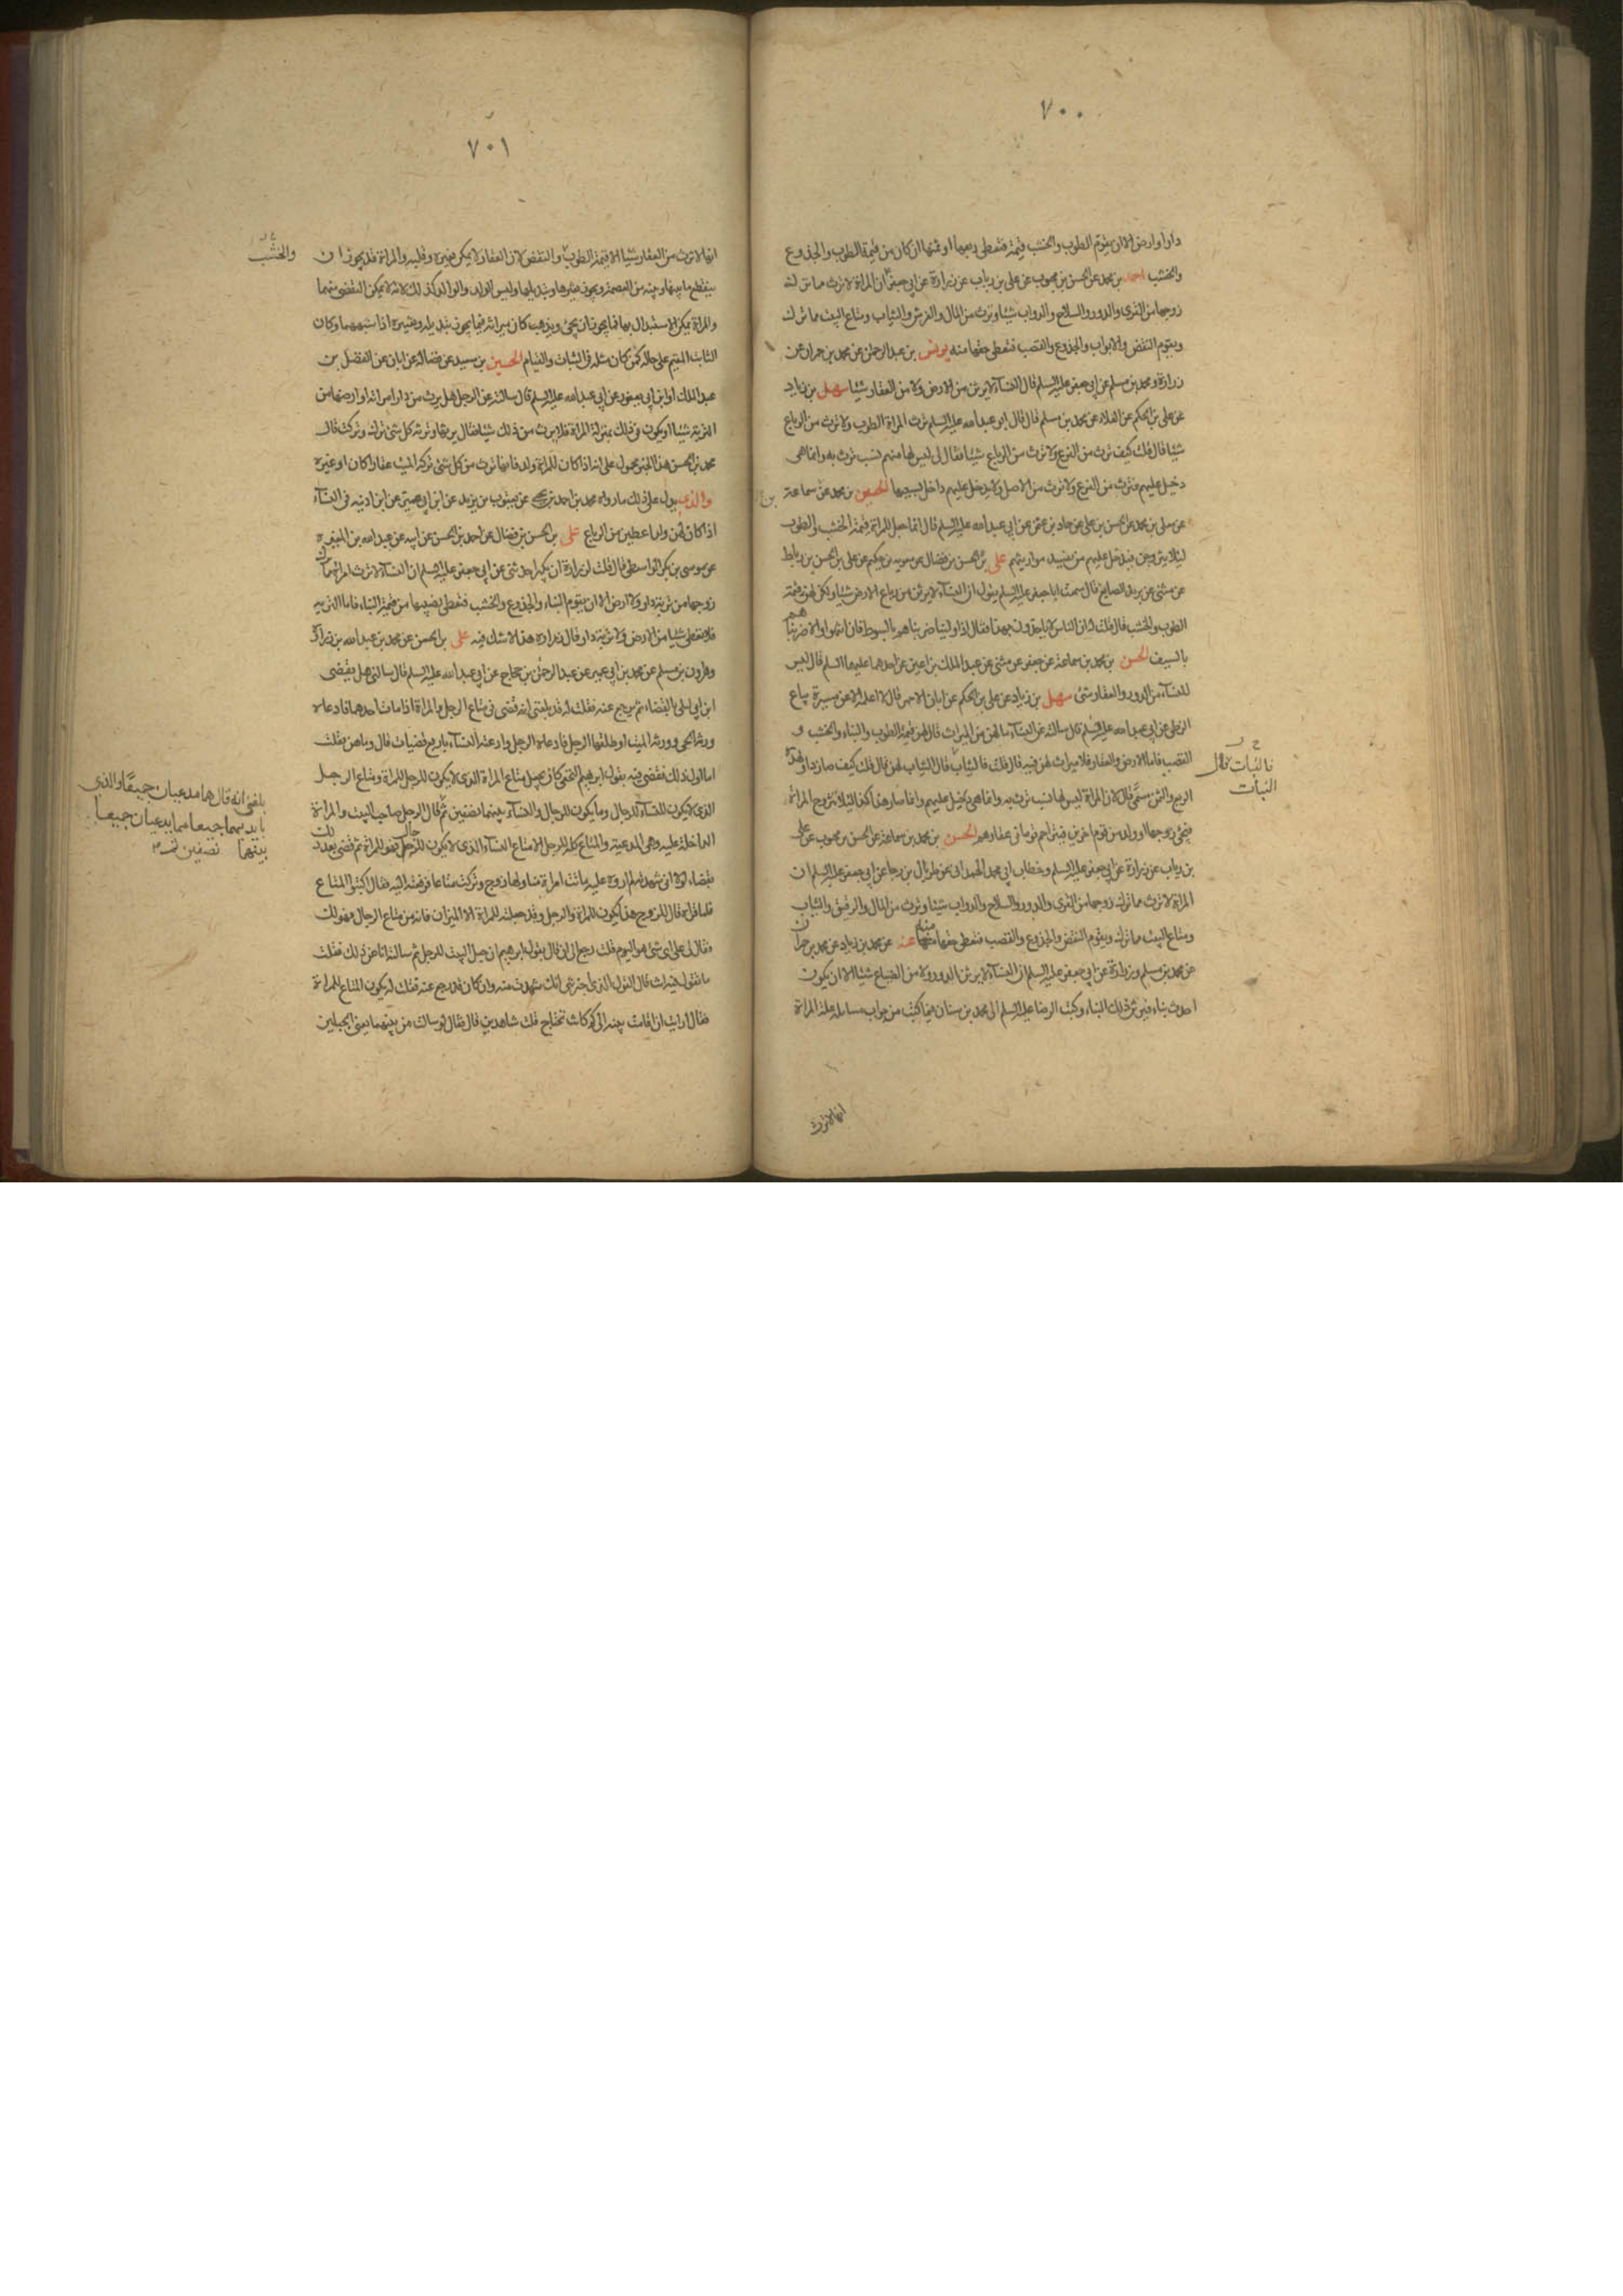 ٧٠٠
دارا او ارض الا ان يقوم الطوب والخشب قيمة فتعطى ربعها او ثمنها ان كان من قيمة الطوب والجذوع
والخشب احمد بن محمد عن الحسن بن محبوب عن على بن رياب عن زرارة عن ابى جعفر ان المراة لا ترث مما ترك
زوجها من القرى والدور والسلاح والدواب شيئا وترث من المال والفرش والثياب ومتاع البيت مما ترك
ويقوم النقض والابواب والجذوع والقصب فتعطى حقها منه يونس بن عبد الرحمن عن محمد بن حمران عن
زرارة ومحمد بن مسلم عن ابى جعفر عليه السلم قال النسآء لا يرثن من الارض ولا من العقار شيئا سهل بن زياد
عن على بن الحكم عن العلاء عن محمد بن مسلم قال قال ابو عبد الله عليه السلم ترث المراة الطوب ولا ترث من الرباع
شيئا قال قلت كيف ترث من الفرع ولا ترث من الرباع شيئا فقال لى ليس لها منهم نسب ترث به وانما هى
دخيل عليهم فترث من الفرع ولا ترث من الاصل ولا يدخل عليهم داخل بسببها الحسين بن محمد عن سماعة
عن معلى بن محمد عن الحسن بن على عن حماد بن عثمن عن ابى عبد الله عليه السلم قال انما جعل للمراة قيمة الخشب والطوب
لئلا يتزوجن فيدخل عليهم من يفسد مواريثهم على بن الحسن بن فضال عن معوية بن حكيم عن على بن الحسن بن رباط
عن مثنى عن يزيد الصايغ قال سمعت ابا جعفر عليه السلم يقول ان النسآء لا يرثن من رباع الارض شيئا ولكن لهن قيمة
الطوب والخشب قال قلت له ان الناس لا ياخذون بهذا فقال اذا ولينا ضربناهم بالسوط فان انتهوا والا ضربناهم
بالسيف الحسن بن محمد بن سماعة عن جعفر عن مثنى عن عبد الملك بن اعين عن احدهما عليهما السلم قال ليس
للنسآء من الدور والعقار شئ سهل بن زياد عن على بن الحكم عن ابان الاحمر قال لا اعلمه الا عن ميسرة بياع
الزطى عن ابى عبد الله عليه السلم قال سالته عن النسآء ما لهن من الميراث قال لهن قيمة الطوب والبناء والخشب و
القصب فاما الارض والعقار فلا ميراث لهن فيه قال قلت فالثياب قال الثياب لهن قال قلت كيف صار ذا ولهذه
فالبنات قال
البنات
الربع والثمن مسمى قال لان المراة ليس لها نسب ترث به وانما هى دخيل عليهم وانما صار هذا كذا لئلا تتزوج المراة
فيجئ زوجها او ولد من قوم اخرين فيزاحم قوما فى عقارهم الحسن بن محمد بن سماعة عن الحسن بن محبوب عن على
بن رياب عن زرارة عن ابى جعفر عليه السلم وخطاب ابى محمد الهمدانى عن طربال بن رجا عن ابى جعفر عليه السلم ان
المراة لا ترث مما ترك زوجها من القرى والدور والسلاح والدواب شيئا وترث من المال والرقيق والثياب
ومتاع البيت مما ترك ويقوم النقض والجذوع والقصب فتعطى حقها منه عنه عن محمد بن زياد عن محمد بن حمران
عن محمد بن مسلم وزرارة عن ابى جعفر عليه السلم ان النسآء لا يرثن الدور ولا من الضياع شيئا الا ان يكون
احدث بناء فيرثن ذلك البناء وكتب الرضا عليه السلم الى محمد بن سنان فيما كتب من جواب مسايله علة المراة
انها لا ترث
٧٠١
انها لا ترث من العقار شيئا الا قيمة الطوب والنقض لان العقار لا يمكن تغييره وقلبه والمراة قد يجوز ان
والخشب
ينقطع ما بينها وبينه من العصمة ويجوز تغييرها وتبديلها وليس الولد والوالد كذلك لانه لا يمكن التفصى منهما
والمراة يمكن الاستبدال بها فما يجوز ان يجئ ويذهب كان ميراثه فيما يجوز تبديله وتغييره اذا شبههما وكان
الثابت المقيم على حاله كمن كان مثله فى الثبات والقيام الحسين بن سعيد عن فضالة عن ابان عن الفضل بن
عبد الملك او ابن ابى يعفور عن ابى عبد الله عليه السلم قال سالته عن الرجل هل يرث من دار امراته او ارضها من
التربة شيئا او يكون فى ذلك بمنزلة المراة فلا يرث من ذلك شيئا فقال يرثها وترثه كل شئ ترك وتركت قال
محمد بن الحسن هذا الخبر محمول على انه اذا كان للمراة ولد فانها ترث من كل شئ تركه الميت عقارا كان او غيره
والذى يدل على ذلك ما رواه محمد بن احمد بن يحيى عن يعقوب بن يزيد عن ابن ابى عمير عن ابن اذينه فى النسآء
اذا كان لهن ولد اعطين من الرباع على بن الحسن بن فضال عن احمد بن الحسن عن ابيه عن عبد الله بن المغيرة
عن موسى بن بكر الواسطى قال قلت لزرارة ان بكيرا حدثنى عن ابى جعفر عليه السلم ان النسآء لا ترث امراة مما ترك
زوجها من تربة دار ولا ارض الا ان يقوم البناء والجذوع والخشب فتعطى نصيبها من قيمة البناء فاما التربة
فلا تعطى شيئا من الارض ولا تربة دار قال زرارة هذا لا شك فيه على بن الحسن عن محمد بن عبد الله بن زرارة
وهرون بن مسلم عن محمد بن ابى عمير عن عبد الرحمن بن حجاج عن ابى عبد الله عليه السلم قال سالنى هل يقضى
ابن ابى ليلى بالقضاء ثم يرجع عنه فقلت له قد بلغنى انه قضى فى متاع الرجل والمراة اذا مات احدهما فادعاه
ورثة الحى وورثة الميت او طلقها الرجل فادعاه الرجل وادعته النسآء باربع قضيات قال وما هن فقلت
اما اول ذلك فقضى فيه بقول ابرهيم النخعى كان يجعل متاع المراة الذى لا يكون للرجل للمراة ومتاع الرجل
الذى لا يكون للنسآء للرجال وما يكون للرجال والنسآء بينهما نصفين ثم قال الرجل صاحب البيت والمراة
بلغنى انه قال هما مدعيان جميعا والذى
بايديهما جميعا مما يدعيان جميعا
بينهما نصفين ثم
الداخلة عليه وهى المدعية والمتاع كله للرجل الا متاع النسآء الذى لا يكون للرجال فهو للمراة ثم قضى بعد ذلك
بقضاء لولا انى شهدته لم اروه عليه ماتت امراة منا ولها زوج وتركت متاعا فرفعته اليه فقال اكتبوا المتاع
فلما قراه قال للزوج هذا يكون للمراة والرجل وقد جعلته للمراة الا الميزان فانه من متاع الرجال فهو لك
فقال لى على اى شئ هو اليوم قلت رجع الى ان قال بقول ابرهيم ان جعل البيت للرجل ثم سالته انا عن ذلك فقلت
ما تقول فيه انت قال القول الذى اخبرتنى انك شهدت منه وان كان قد رجع عنه قلت له يكون المتاع للمراة
فقال ارايت ان اقامت بينة الى كم كانت تحتاج قلت شاهدين قال فقال لو سالت من بينهما يعنى الجبلين